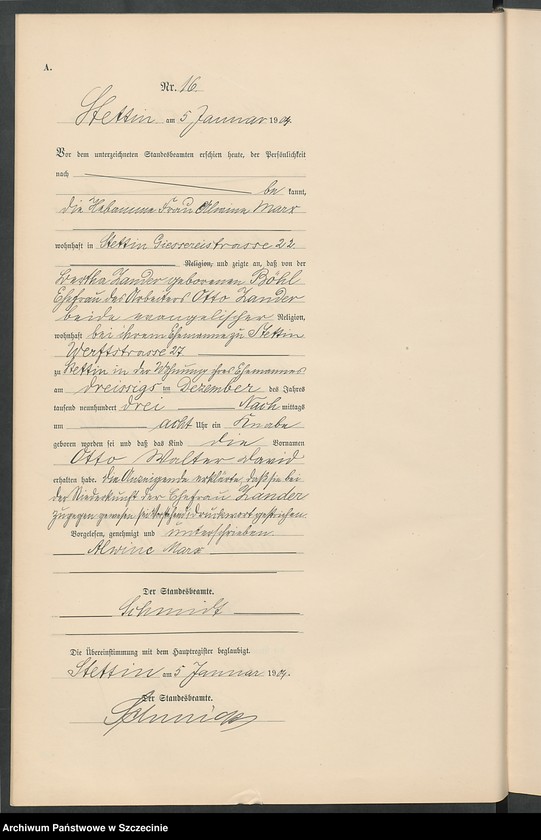 A.
Nr. 16.
Stettin am 5 Januar 1904.
Vor dem unterzeichneten Standesbeamten erschien heute, der Persönlichkeit
nach be kannt,
die Hebamme Frau Alwine Marx
wohnhaft in Stettin Giessereistrasse 22
Religion, und zeigte an, daß von der
Bertha Zander geborenen Böhl
Ehefrau des Arbeiters Otto Zander
beide evangelischer Religion,
wohnhaft bei ihrem Ehemanne zu Stettin
Werftstrasse 27
zu Stettin in der Wohnung ihres Ehemannes
am dreissigs ten Dezember des Jahres
tausend neunhundert drei Nach mittags
um acht Uhr ein Knabe
geboren worden sei und daß das Kind die Vornamen
Otto Walter David
erhalten habe. Die Anzeigende erklärte, daß sie bei
der Niederkunft der Ehefrau Zander
zugegen gewesen sei. Vorstehend 1 Druckwort gestrichen.
Vorgelesen, genehmigt und unterschrieben
Alwine Marx
Der Standesbeamte.
Schmidt
Die Übereinstimmung mit dem Hauptregister beglaubigt.
Stettin am 5 Januar 1904.
Der Standesbeamte.
Archiwum Państwowe w Szczecinie